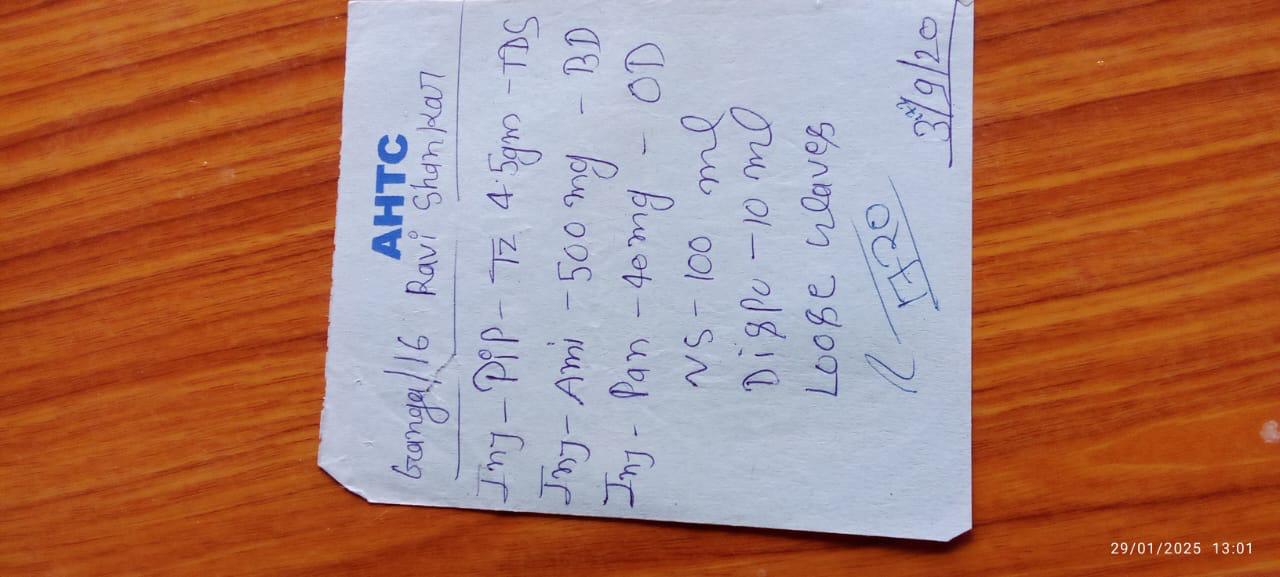 AHTC
Ganga/16 Ravi Shankar
Inj - Pip - TZ 4.5gm - TDS
Inj - Ami - 500 mg - BD
Inj - Pan - 40 mg - OD
NS - 100 ml
Dispo - 10 ml
Loose
1720
3/9/20
29/01/2025 13:01